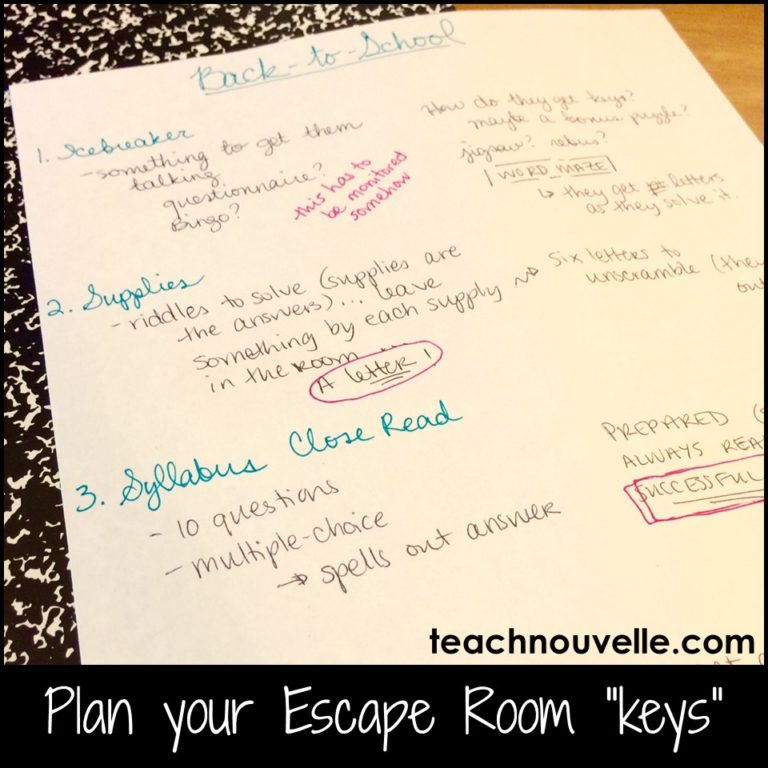 Back-to-School
1. Icebreaker
- something to get them
talking
questionnaire?
Bingo?
this has to
be monitored
somehow
How do they get keys?
maybe a bonus puzzle?
jigsaw? rebus?
WORD MAZE
↳ they get letters
as they solve it.
2. Supplies
- riddles to solve (supplies are
the answers)... leave
something by each supply
in the room...
A letter!
six letters to
unscramble (they
out
3. Syllabus Close Read
- 10 questions
- multiple-choice
→ spells out answer
PREPARED
ALWAYS REA
SUCCESSFUL
teachnouvelle.com
Plan your Escape Room "keys"